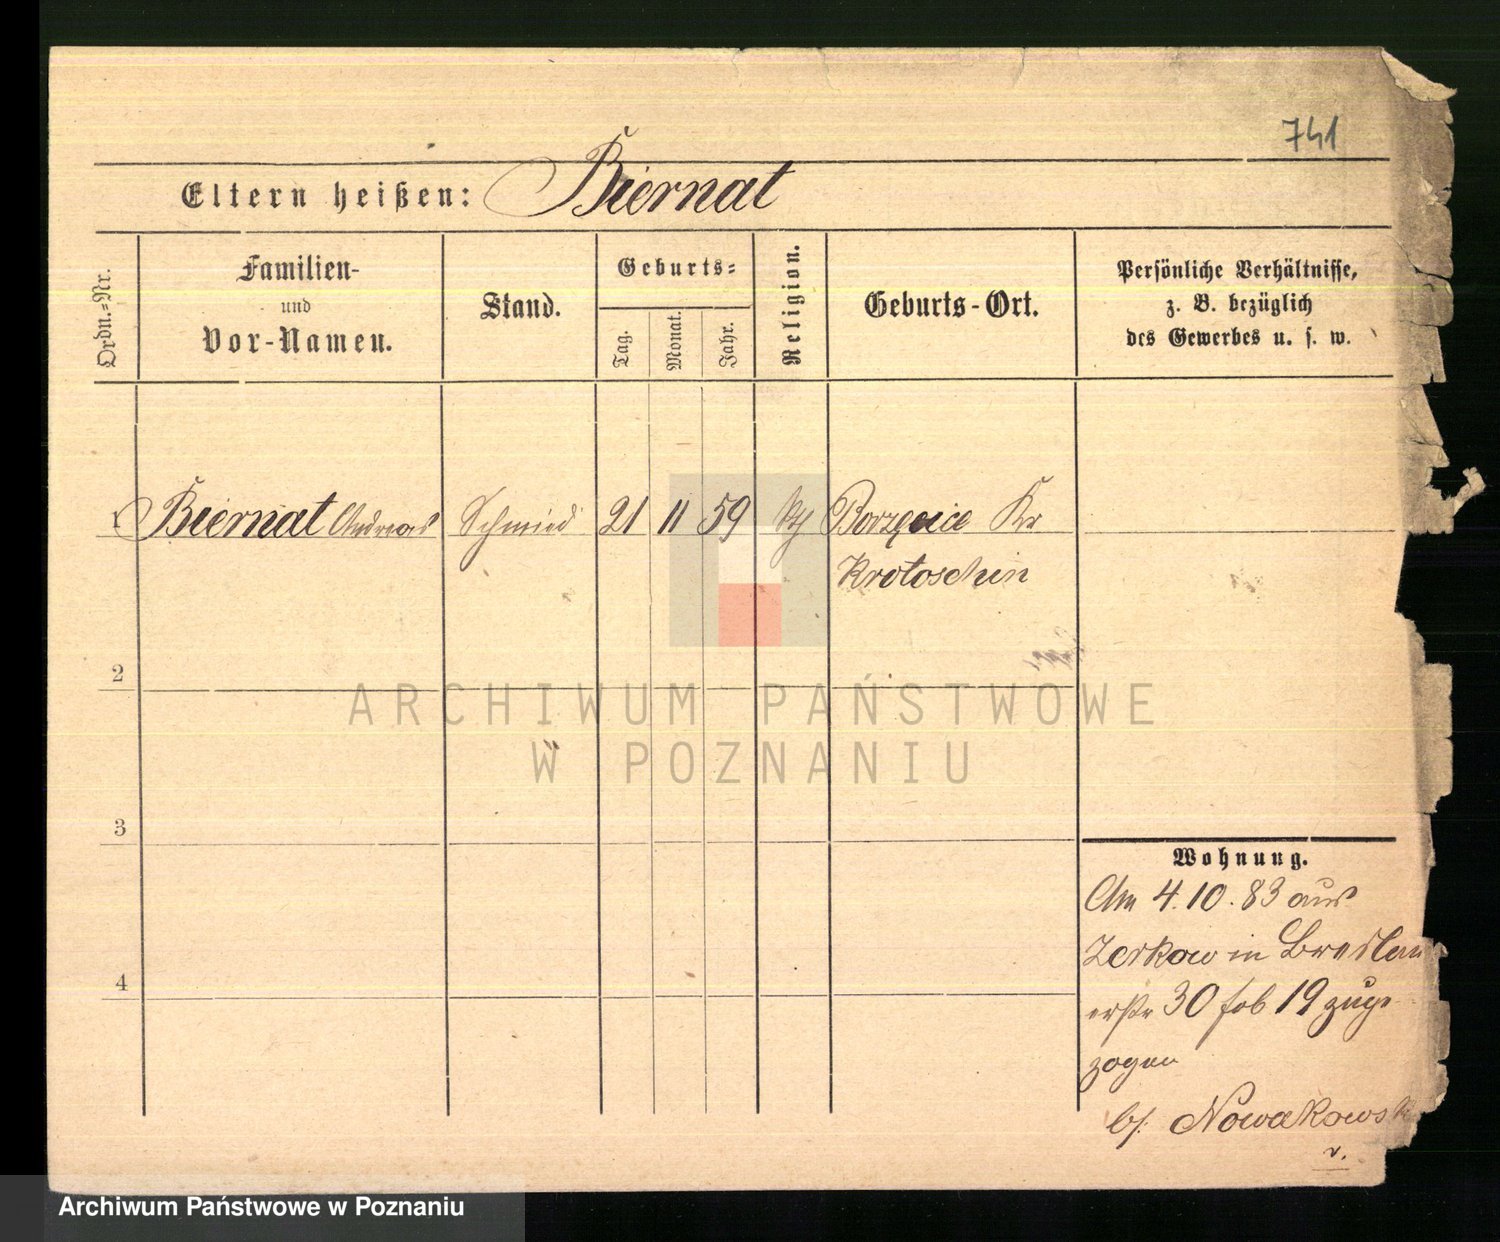 741
Eltern heißen: Biernat
Ordn.-Nr.
Familien-
und
Vor-Namen.
Stand.
Geburts-
Tag.
Monat.
Jahr.
Religion.
Geburts-Ort.
Persönliche Verhältnisse,
z. B. bezüglich
des Gewerbes u. s. w.
1 Biernat Andreas Schmied 21 11 59 kth Borzęcice Kr
Krotoschin
2
3
4
Wohnung.
Am 4.10.83 aus
Zerkow in Breslau
30 19 zuge-
zogen
b/. Nowakowski
v.
ARCHIWUM PAŃSTWOWE
W POZNANIU
Archiwum Państwowe w Poznaniu